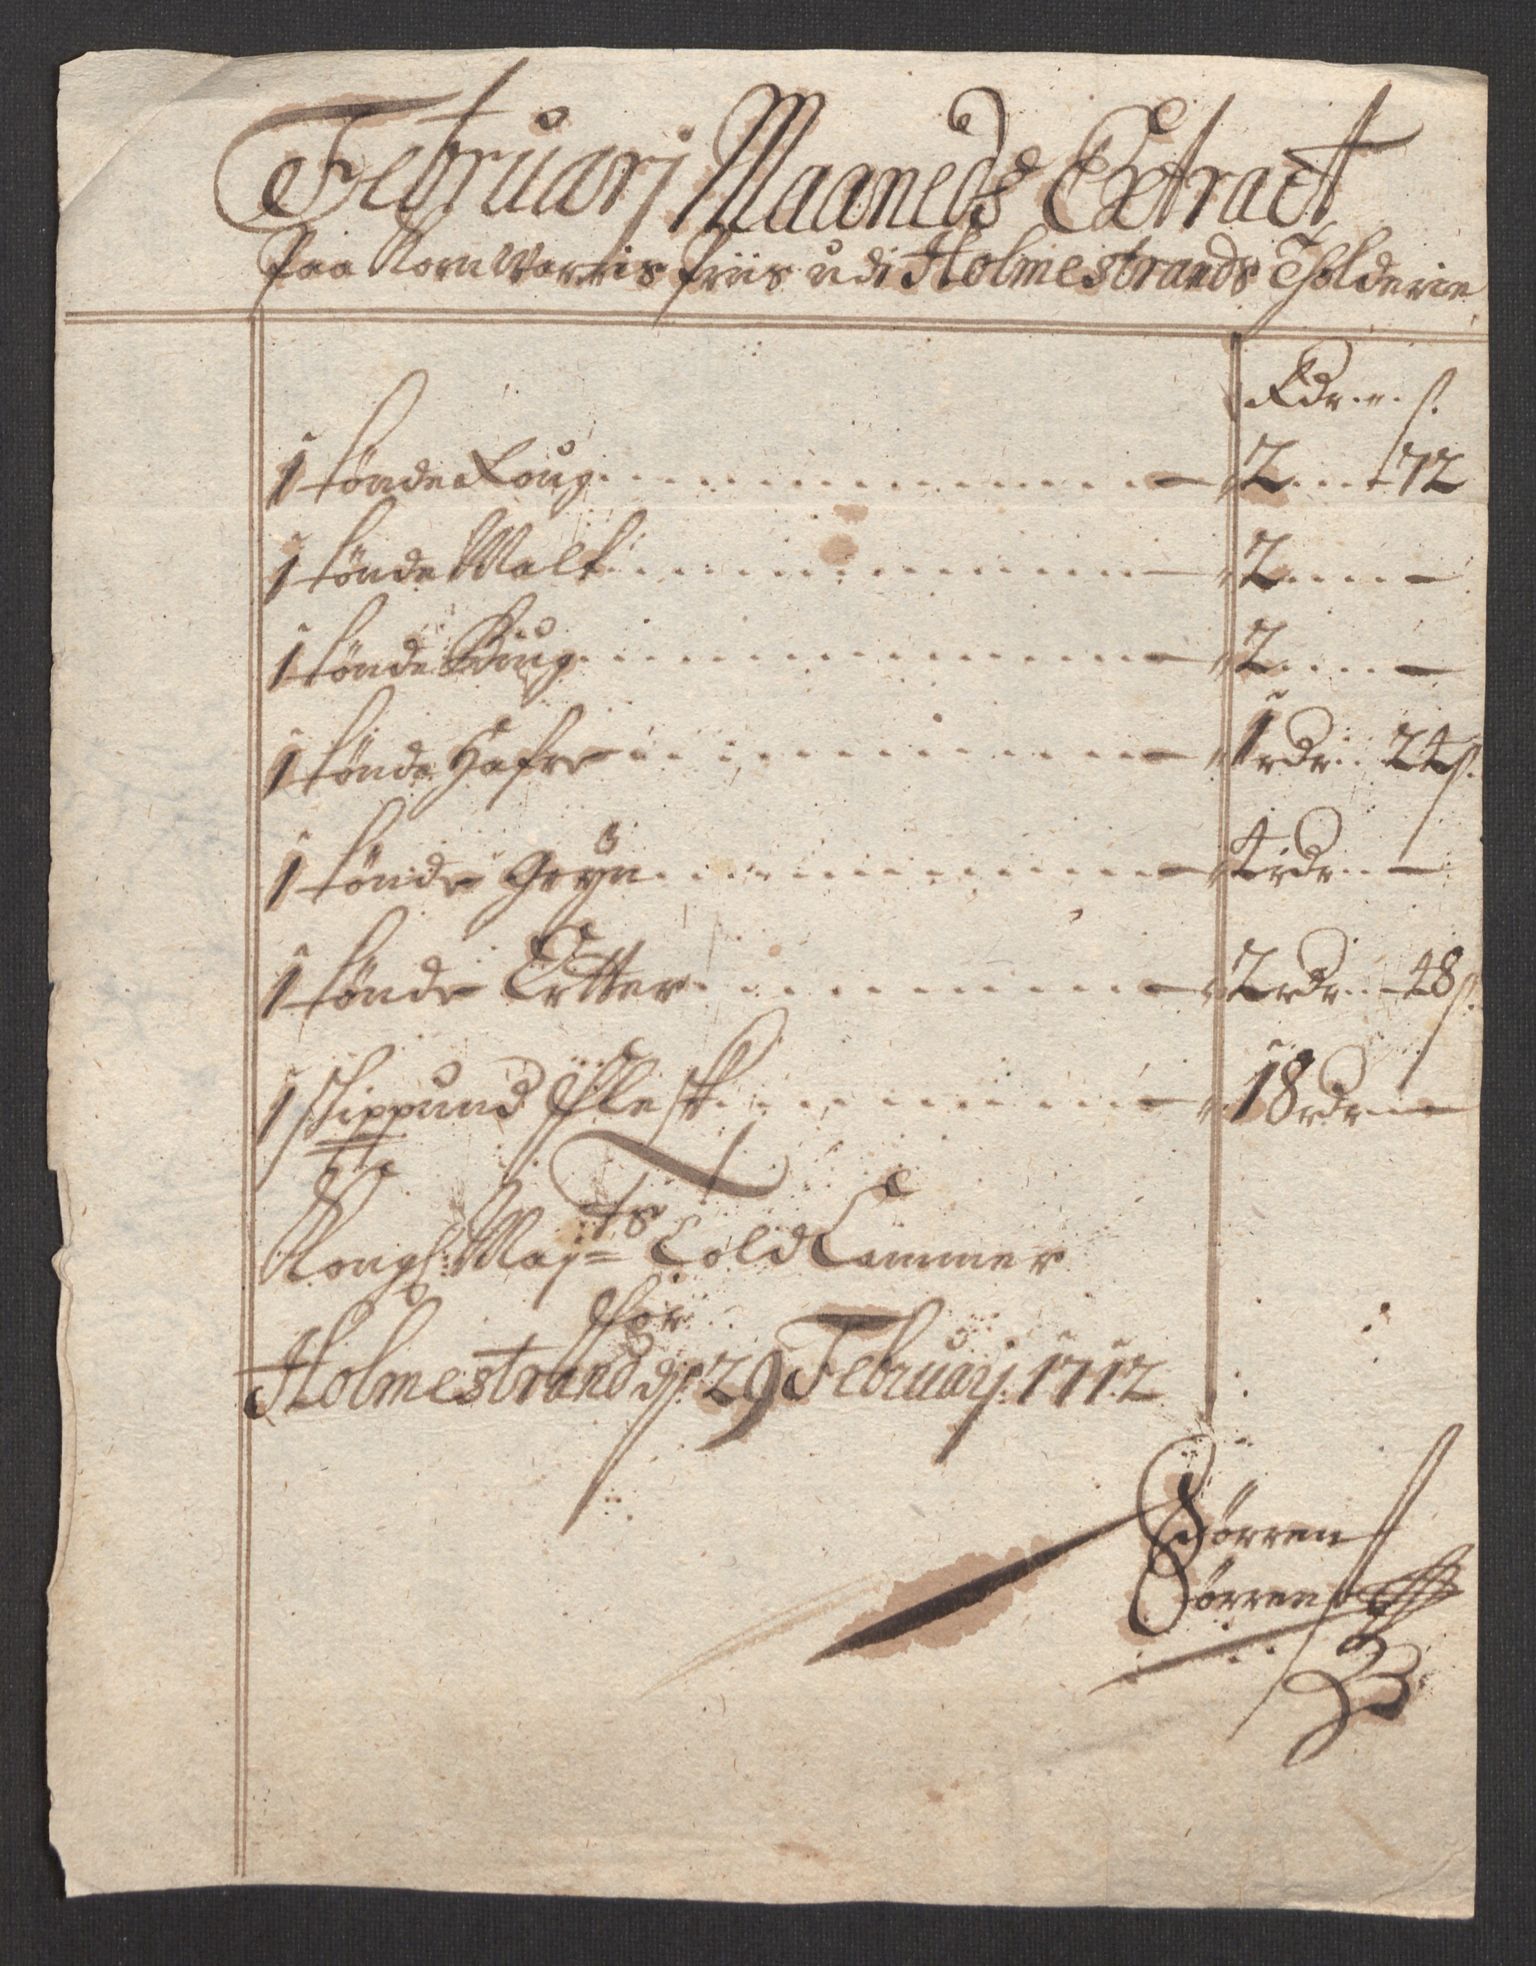 Februarj Maaneds Extract
Paa Korn Varris Priis udi Holmestrands Tolderie
Rdr. s.
1 tönde Roug 2 72
1 tönde Malt 2 —
1 tönde Biug 2 —
1 tönde Hafre 1 rdr 24 s.
1 tönde Gryn 4 rdr —
1 tönde Ertter 2 rdr 48 s.
1 skippund Flesk 18 rdr —
Kongl. Maj=ts Told Cammer
for
Holmestrand d. 29 Februarj 1712
Sörren
Sörrens